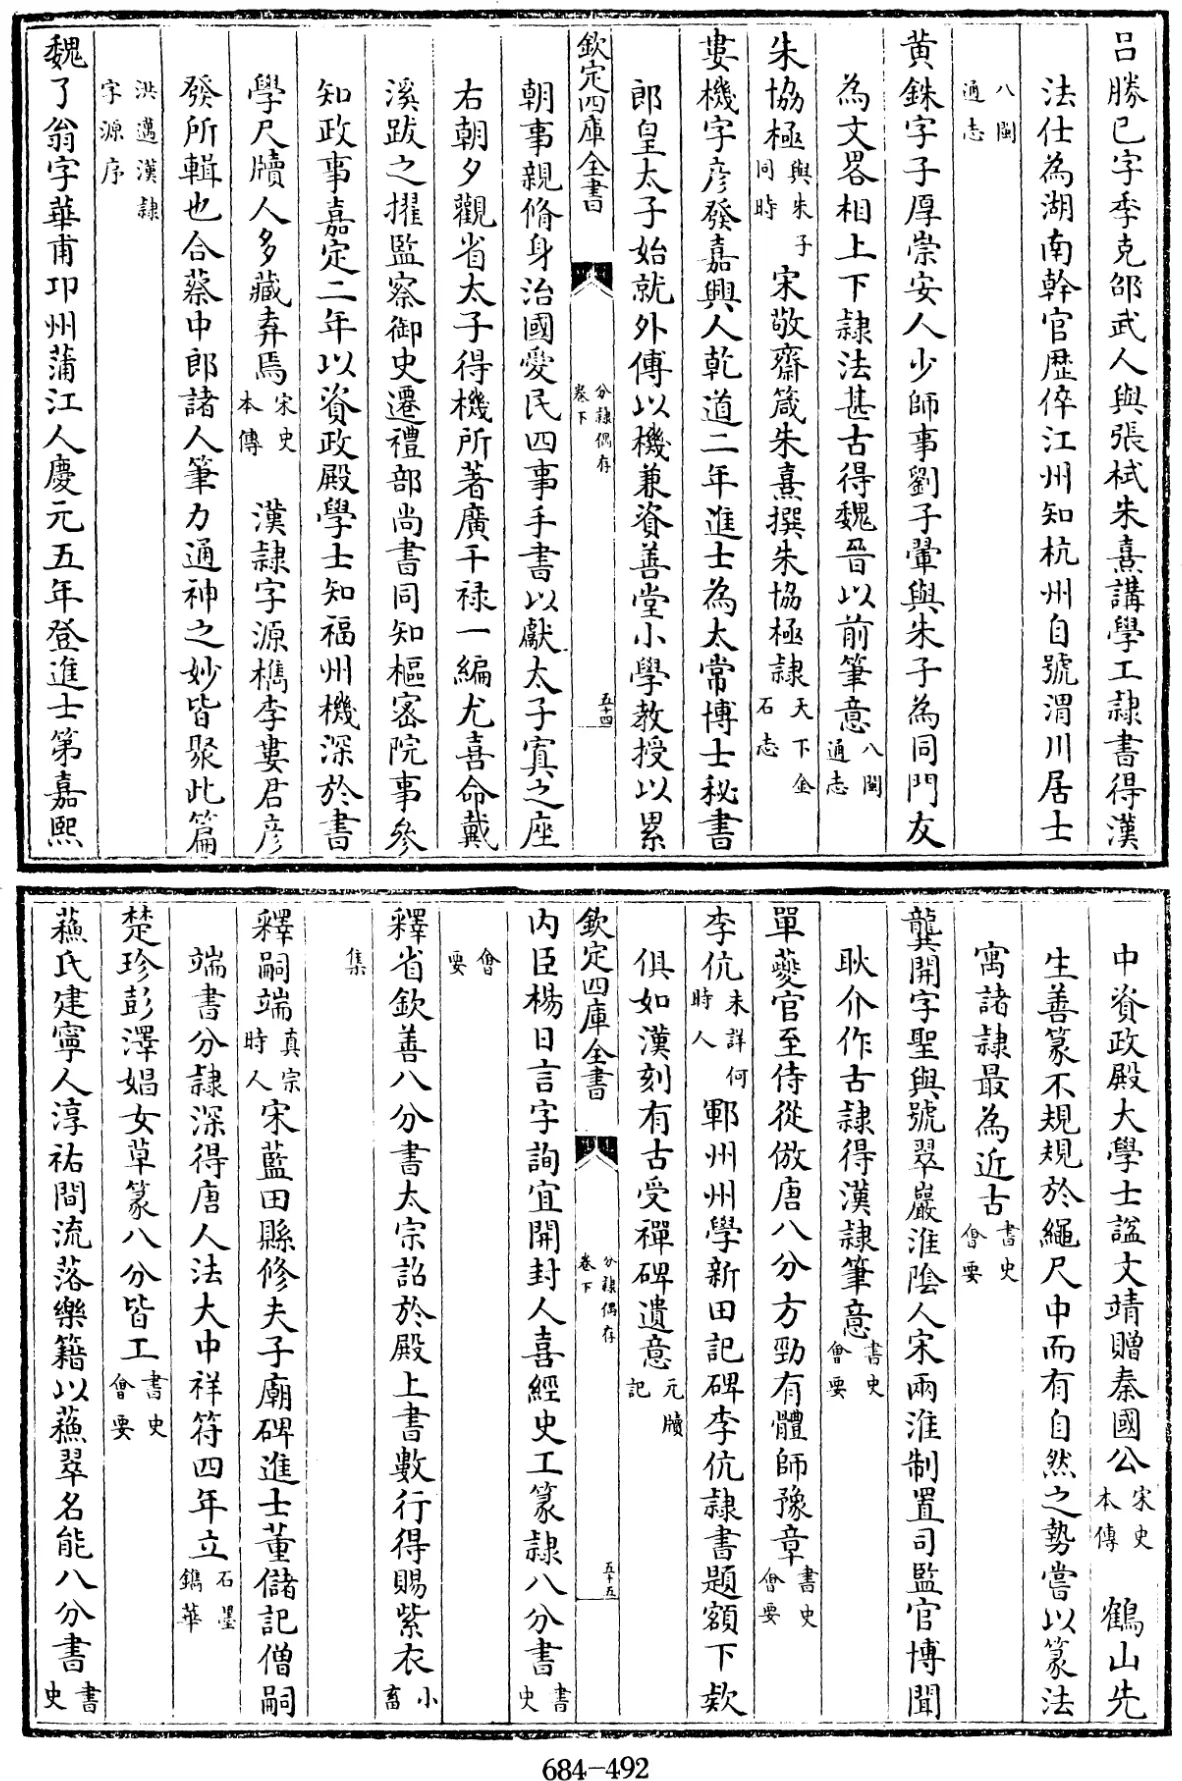 呂勝己字季克邵武人與張栻朱熹講學工隷書得漢
法仕為湖南幹官歴倅江州知杭州自號渭川居士
八閩
通志
黄銖字子厚崇安人少師事劉子翬與朱子為同門友
為文畧相上下隷法甚古得魏晉以前筆意八閩通志
朱協極與朱子同時 宋敬齋箴朱熹撰朱協極隷天下金石志
婁機字彦發嘉興人乾道二年進士為太常博士秘書
郎皇太子始就外傅以機兼資善堂小學教授以累
欽定四庫全書 分隷偶存卷下 五十四
朝事親脩身治國愛民四事手書以獻太子寘之座
右朝夕觀省太子得機所著廣干禄一編尤喜命戴
溪跋之擢監察御史遷禮部尚書同知樞密院事參
知政事嘉定二年以資政殿學士知福州機深於書
學尺牘人多藏弆焉宋史本傳 漢隷字源檇李婁君彦
發所輯也合蔡中郎諸人筆力通神之妙皆聚此篇
洪邁漢隷
字源序
魏了翁字華甫卭州蒲江人慶元五年登進士第嘉熙
中資政殿大學士諡文靖贈秦國公宋史本傳 鶴山先
生善篆不規規於繩尺中而有自然之勢嘗以篆法
寓諸隷最為近古書史會要
龔開字聖與號翠巖淮陰人宋兩淮制置司監官博聞
耿介作古隷得漢隷筆意書史會要
單夔官至侍從倣唐八分方勁有體師豫章書史會要
李伉未詳何時人 鄆州州學新田記碑李伉隷書題額下欵
俱如漢刻有古受禪碑遺意元牘記
欽定四庫全書 分隷偶存卷下 五十五
内臣楊日言字詢宜開封人喜經史工篆隷八分書書史
會要
釋省欽善八分書太宗詔於殿上書數行得賜紫衣小畜
集
釋嗣端真宗時人 宋藍田縣修夫子廟碑進士董儲記僧嗣
端書分隷深得唐人法大中祥符四年立石墨鐫華
楚珍彭澤娼女草篆八分皆工書史會要
蘓氏建寧人淳祐間流落樂籍以蘓翠名能八分書書史
684-492